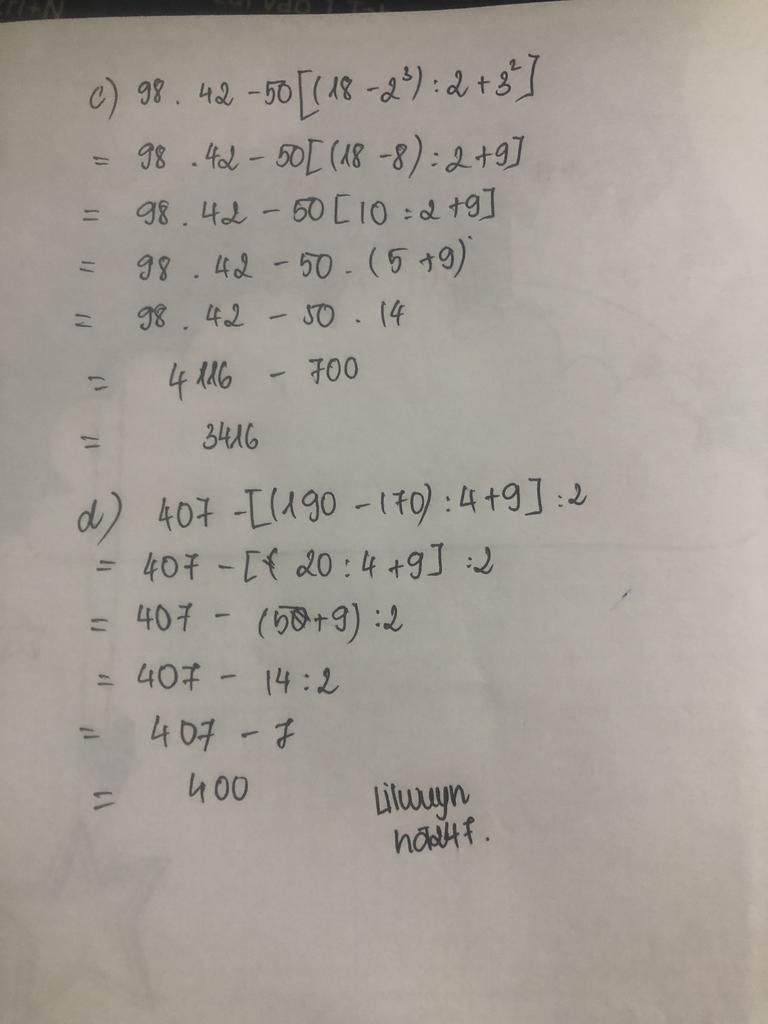 c) 98 . 42 - 50[(18 - 2³) : 2 + 3²]
= 98 . 42 - 50[(18 - 8) : 2 + 9]
= 98 . 42 - 50[10 : 2 + 9]
= 98 . 42 - 50 . (5 + 9)
= 98 . 42 - 50 . 14
= 4116 - 700
= 3416
d) 407 - [(190 - 170) : 4 + 9] : 2
= 407 - [20 : 4 + 9] : 2
= 407 - (5 + 9) : 2
= 407 - 14 : 2
= 407 - 7
= 400